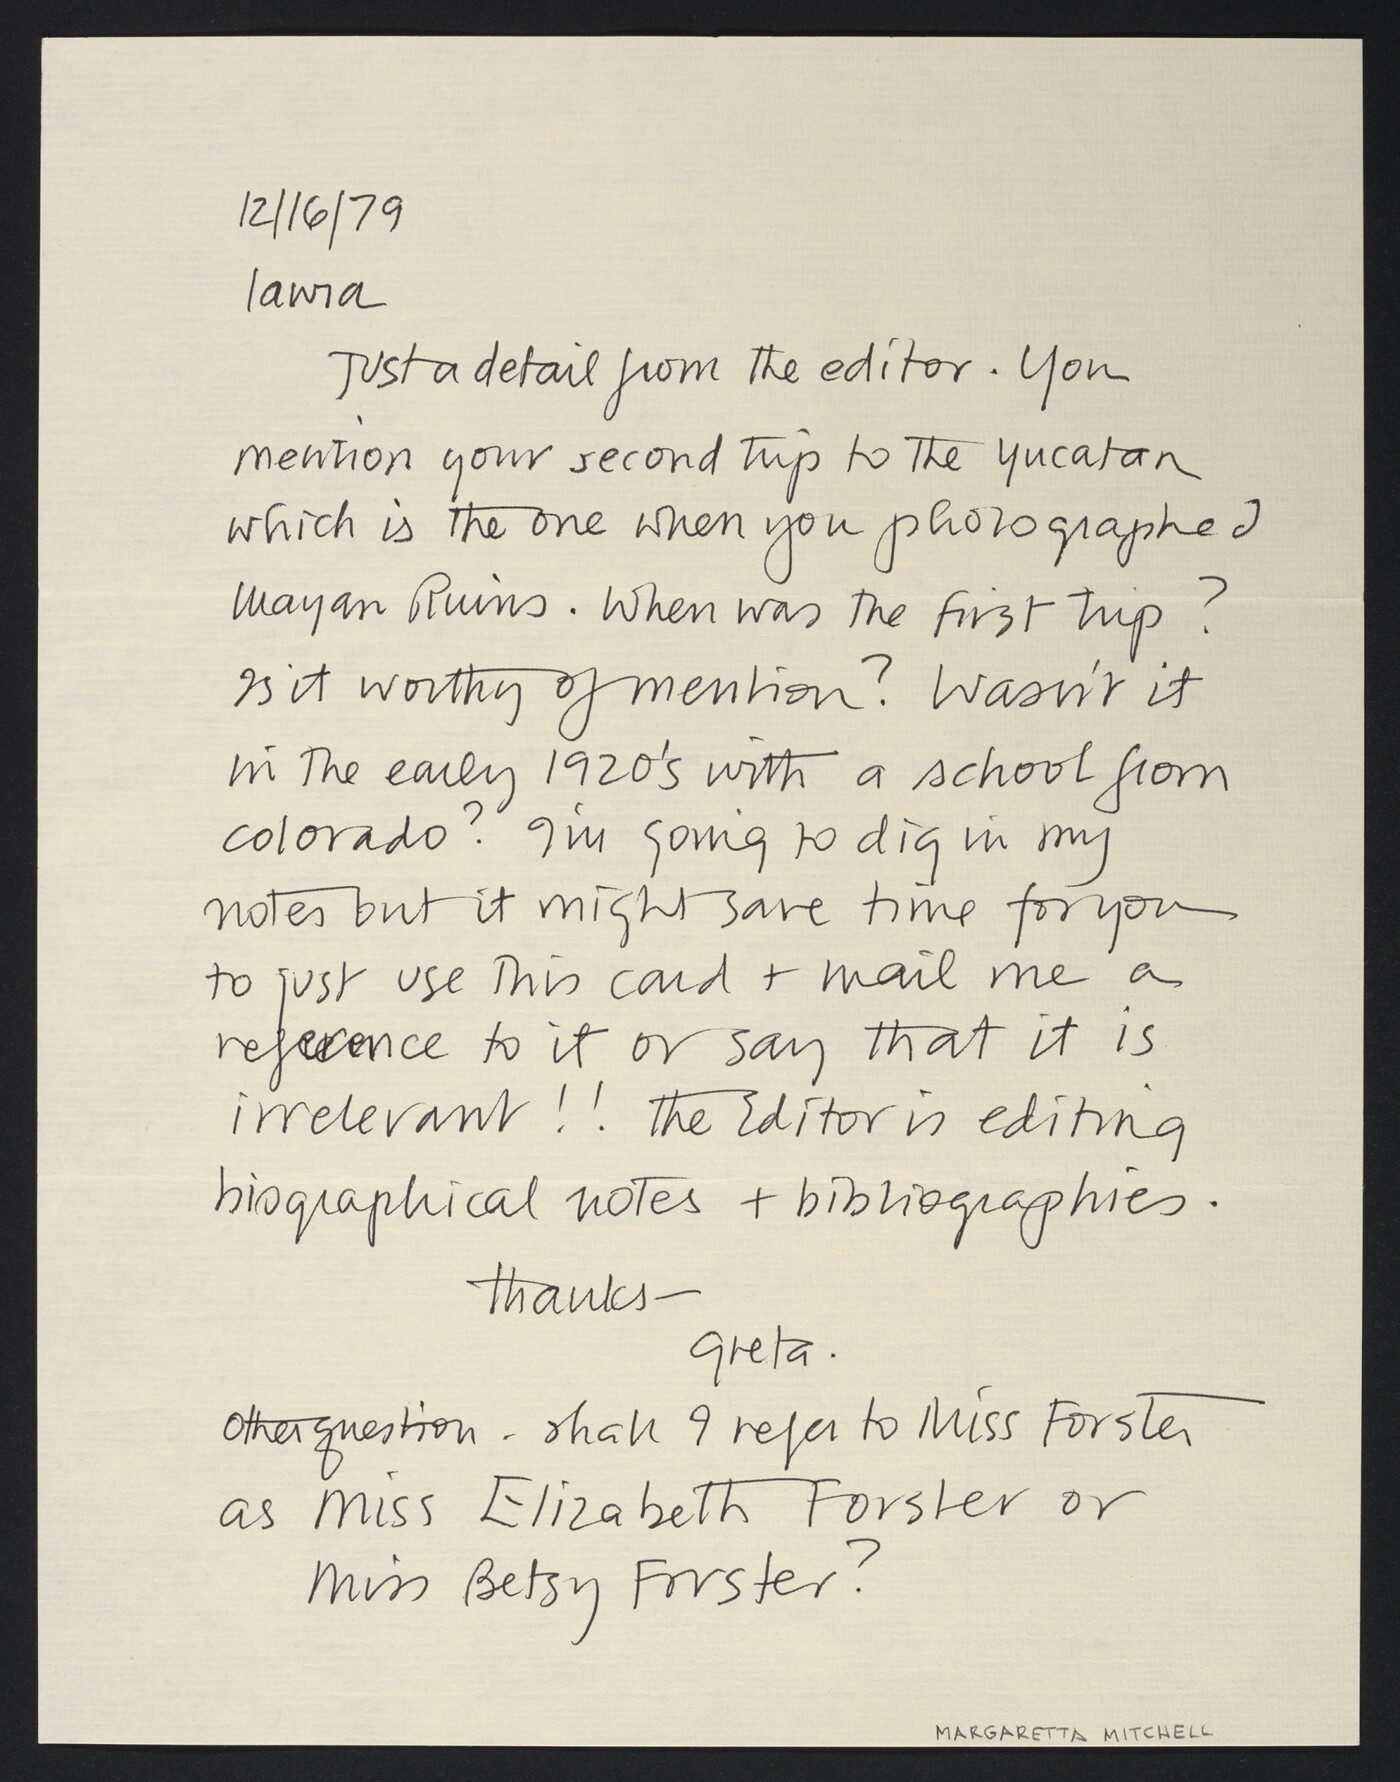 12/16/79
laura
Just a detail from the editor. You
mention your second trip to the Yucatan
which is the one when you photographed
Mayan Ruins. When was the first trip?
Is it worthy of mention? Wasn't it
in the early 1920's with a school from
colorado? I'm going to dig in my
notes but it might save time for you
to just use this card + mail me a
reference to it or say that it is
irrelevant!! The Editor is editing
biographical notes + bibliographies.
Thanks—
Greta.
Other question - shall I refer to Miss Forster
as Miss Elizabeth Forster or
Miss Betsy Forster?
MARGARETTA MITCHELL